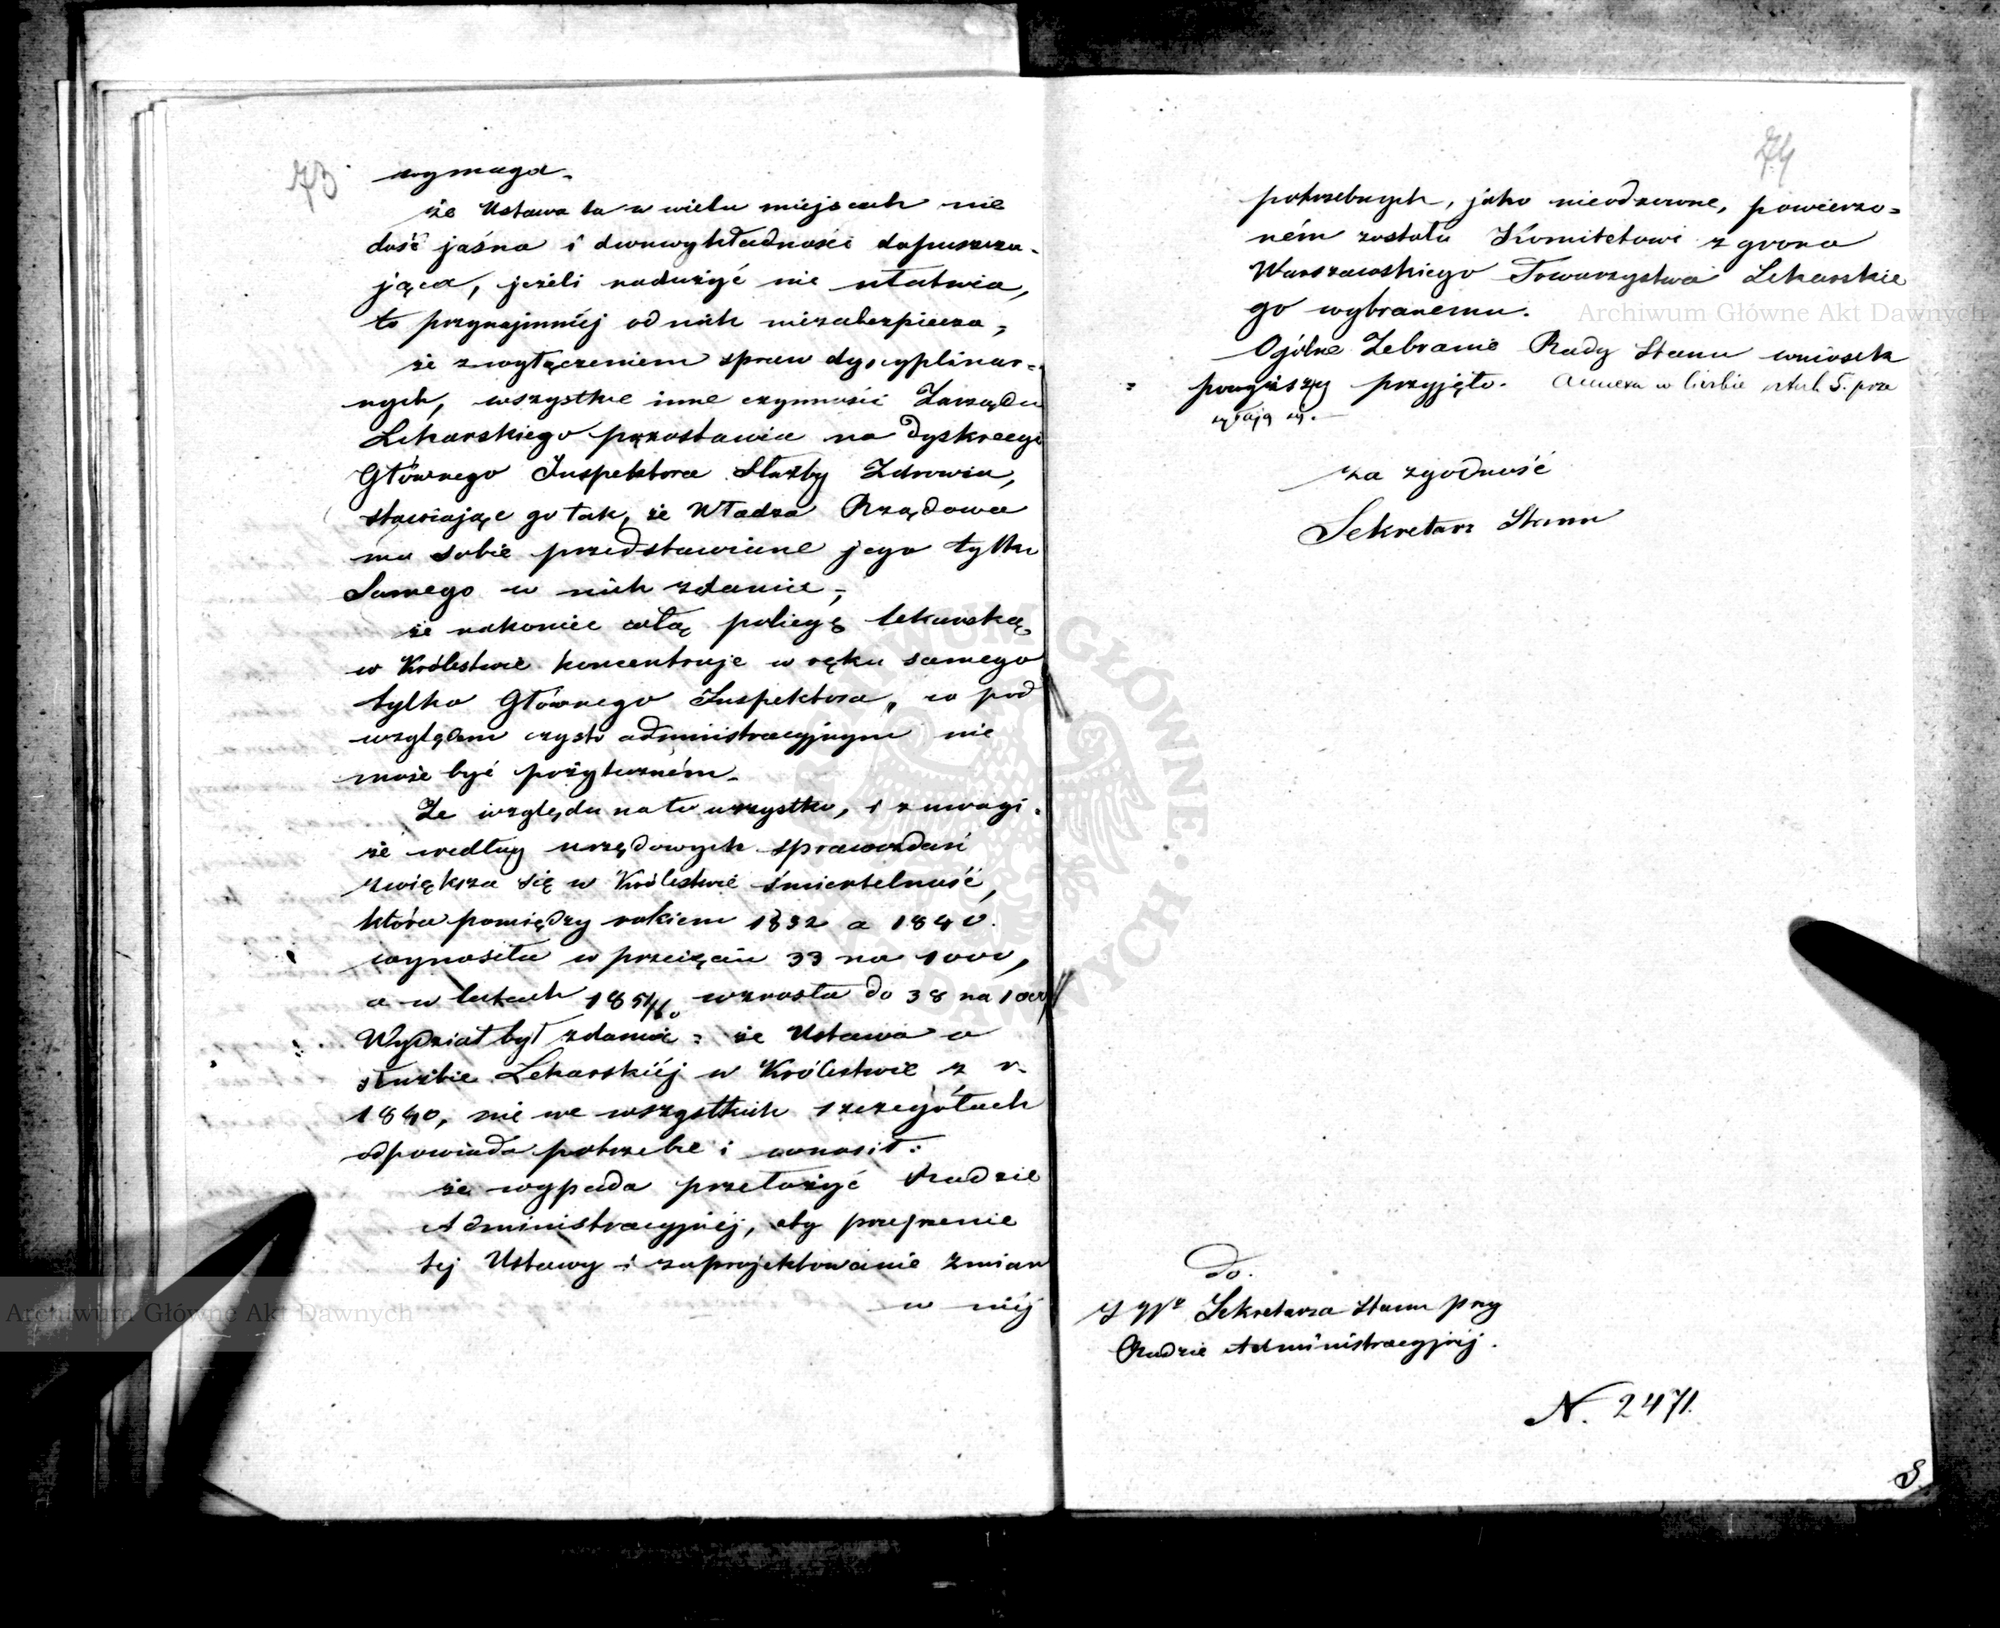 73
wymaga.
że Ustawa ta w wielu miejscach nie
dość jasna i dwuwykładności dopuszcza-
jąca, jeżeli nadużyć nie ułatwia,
to przynajmniéj od nich niezabezpiecza,
że z wyłączeniem spraw dyscyplinar-
nych, wszystkie inne czynności Zarządu
Lekarskiego pozostawia na dyskrecyi
Głównego Inspektora Służby Zdrowia,
stawiając go tak, że Władza Rządowa
ma sobie przedstawione jego tylko
Samego w nich zdanie,
że nakoniec całą policyę lekarską
w Królestwie koncentruje w ręku samego
tylko Głównego Inspektora, co pod
względem czysto administracyjnym nie
może być pożyteczném.
Ze względu na to wszystko, i z uwagi
że według urzędowych sprawozdań
zwiększa się w Królestwie śmiertelność,
która pomiędzy rokiem 1832 a 1840.
wynosiła w przecięciu 33 na 1000,
a w latach 185 /60 wzrosła do 38 na 1000
Wydział był zdania: że Ustawa o
służbie Lekarskiéj w Królestwie z r.
1840, nie we wszystkich szczegółach
odpowiada potrzebie i wnosił:
że wypada przełożyć Radzie
Administracyjnéj, aby przejrzenie
tej Ustawy i zaprojektowanie zmian
w niéj
74
potrzebnych, jako nieodzowne, powierzo-
ném zostało Komitetowi z grona
Warszawskiego Towarzystwa Lekarskie
go wybranemu.
Ogólne Zebranie Rady Stanu wniosek
powyższy przyjęło. Annexa w liczbie sztuk 5. prze
syłają się.
Za zgodność
Sekretarz Stanu
do.
Sekretarza Stanu przy
Radzie Administracyjnéj.
N. 2471.
S.
Archiwum Główne Akt Dawnych
Archiwum Główne Akt Dawnych
ARCHIWUM GŁÓWNE AKT DAWNYCH